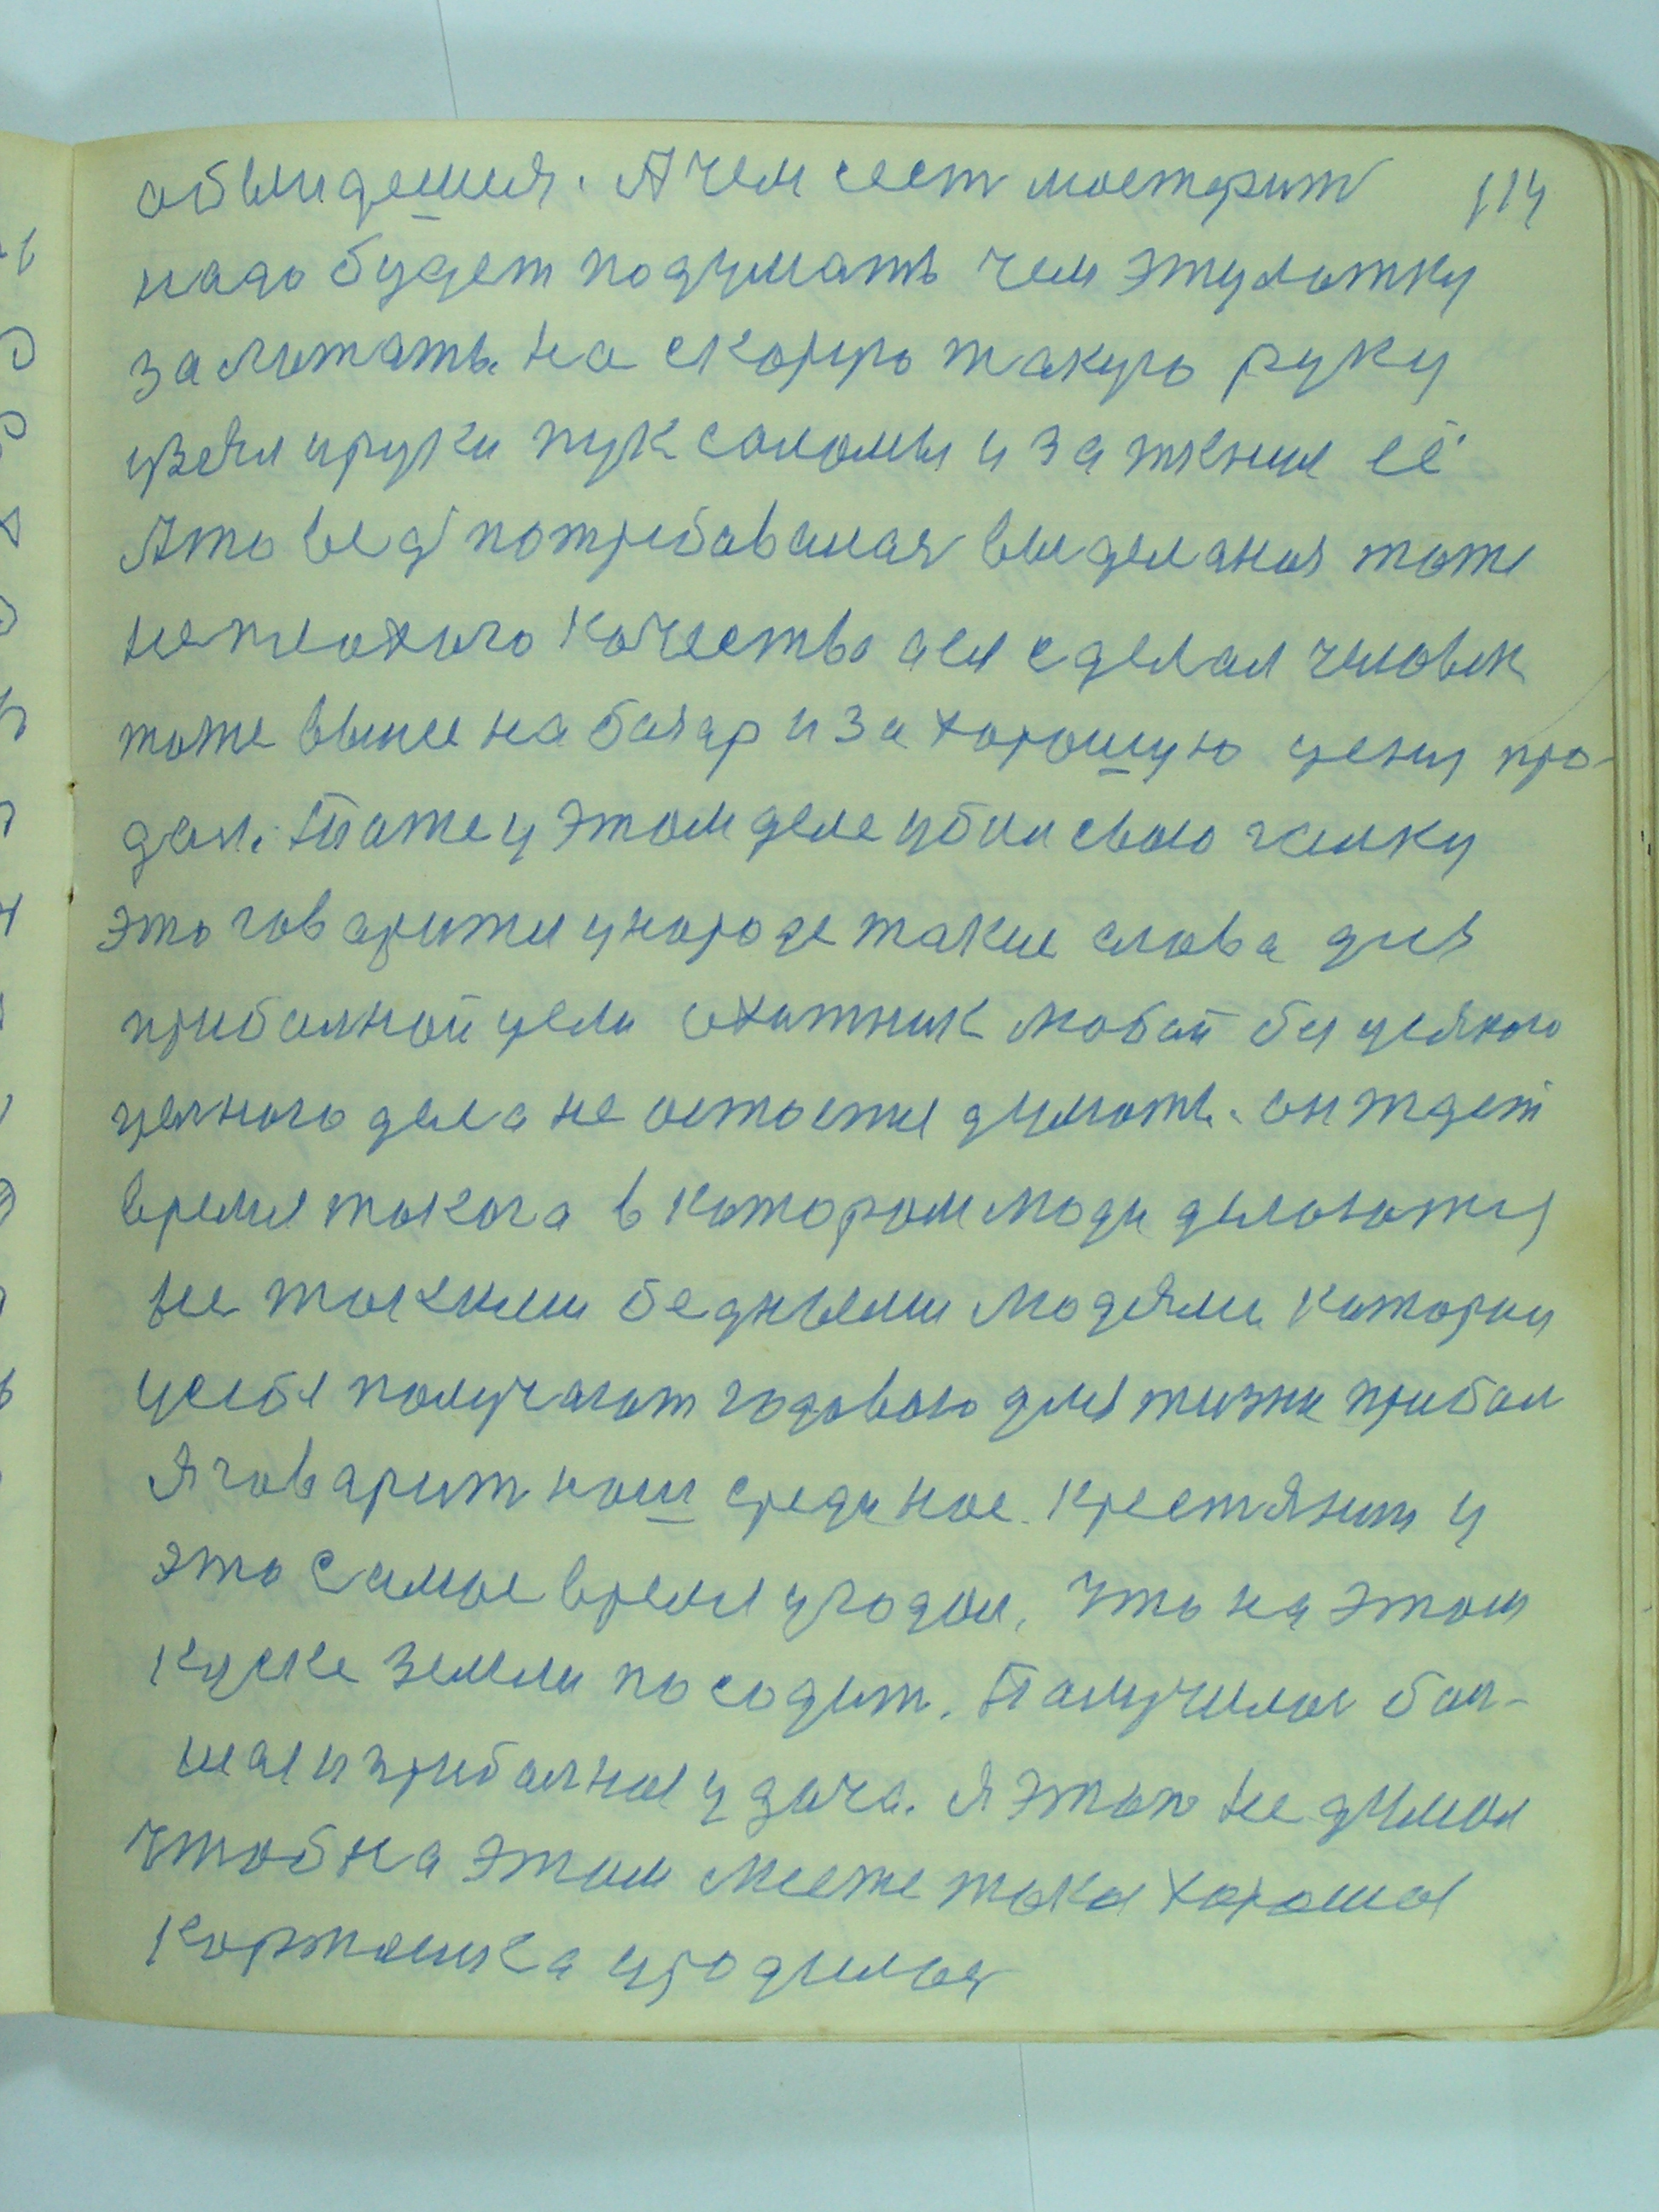 114
объидешия. А чем сест мостерит
надо будет подумать чем эту лотку
залотать. На скорую такую руку
узеял у руки пук соломы и зажкнул её
Ато вед потребавалая выделаная тоже
не плохого качество а ея сделал человек
тоже вынее на базар и за хорошую цену про-
дал. Тоже у этом деле убил свою галку
это говарится у народе такие слова для
прибалной цели охотник любой без уеякого
ценного дела не остоется думать. он ждет
время такога в котором люди делаются
не такими бедными людями. которыи
у себя получают годовою для жизни прибал
Я говарит наш срединое. крестянин у
это самое время угодал, что на этом
куске земли посодит. Палучилас бал-
шая и прибалная удача. Я этого не думал
чтоб на этом месте така хорошая
картошка уродилася